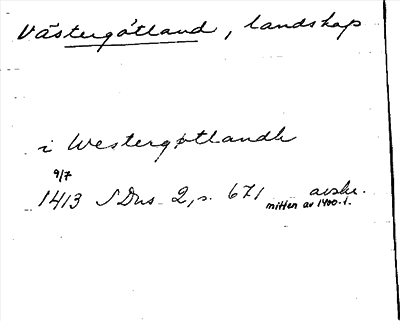 Västergötland, landskap
i Westergøtlandh
9/7
1413 SDns 2, s. 671 avskr.
mitten av 1400-t.